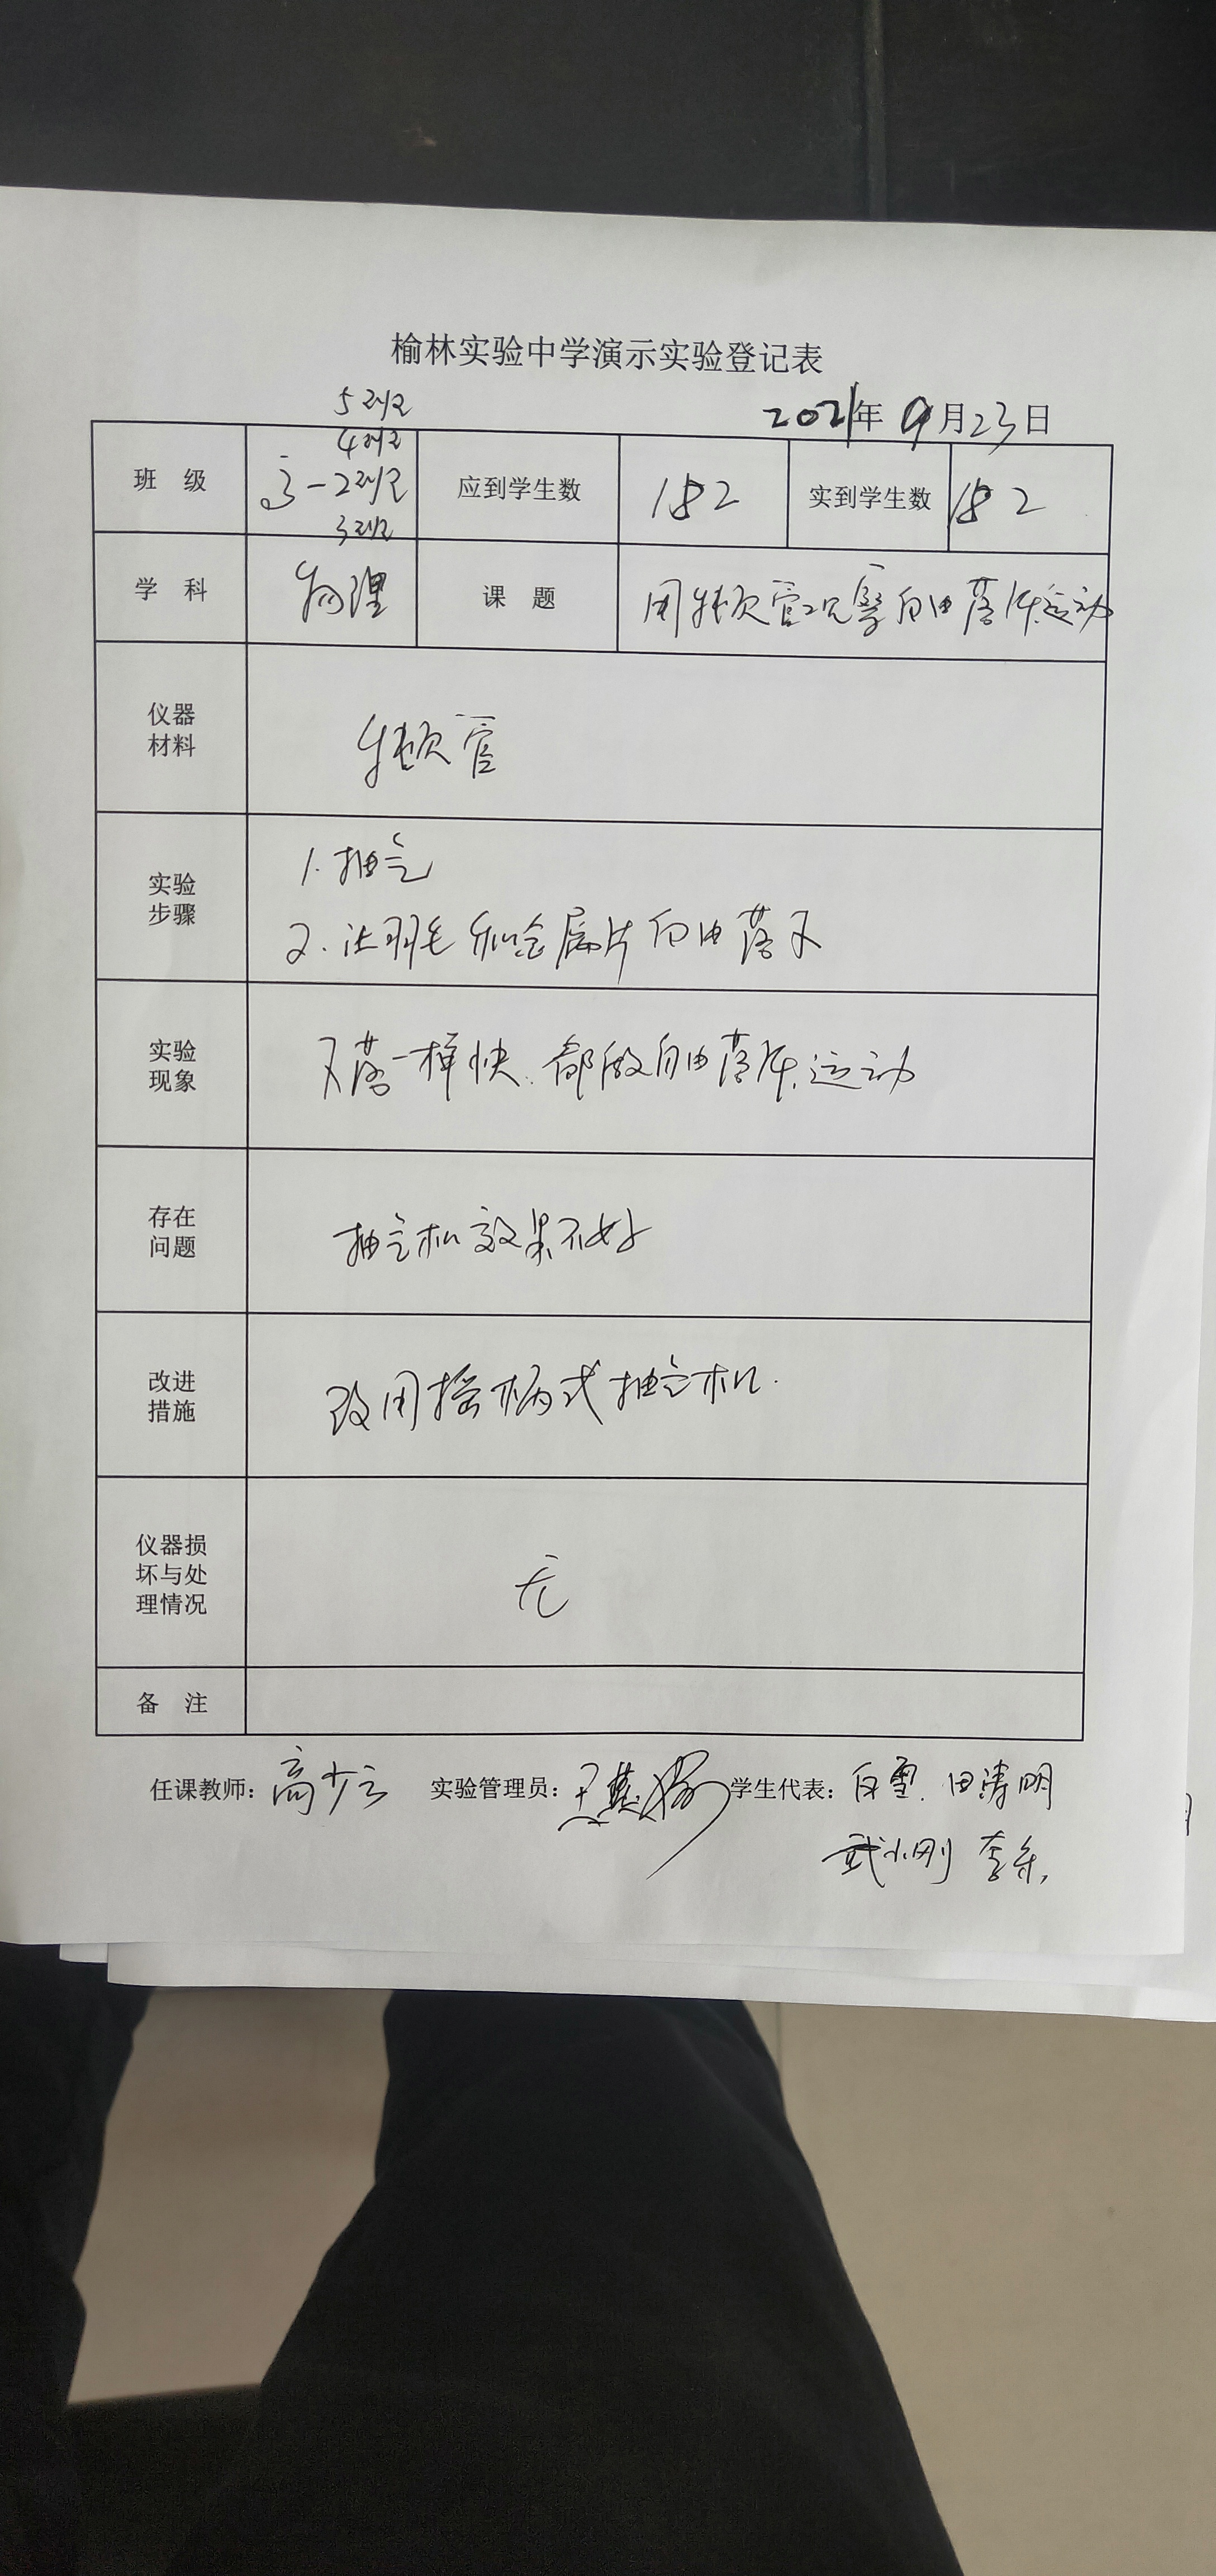 榆林实验中学演示实验登记表
2021年 9月23日
5班
4班
班 级 高一2班 应到学生数 182 实到学生数 182
3班
学 科 物理 课 题 用牛顿管观察自由落体运动
仪器
材料
牛顿管
实验
步骤
1. 抽气
2. 让羽毛和金属片自由落下
实验
现象
下落一样快. 都做自由落体运动
存在
问题
抽气机效果不好
改进
措施
改用摇柄式抽气机.
仪器损
坏与处
理情况
无
备 注
任课教师: 高少云 实验管理员: 学生代表: 白雪. 田涛明
武小刚 李乐